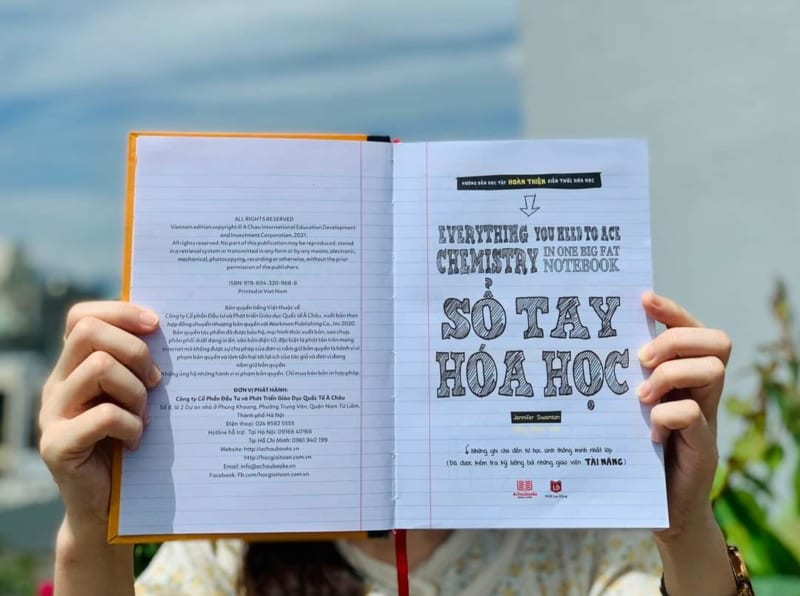 ALL RIGHTS RESERVED
Vietnam edition copyright © A Chau International Education Development
and Investment Corporation, 2021.
All rights reserved. No part of this publication may be reproduced, stored
in a retrieval system or transmitted in any form or by any means, electronic,
mechanical, photocopying, recording or otherwise, without the prior
permission of the publishers.
ISBN: 978-604-320-968-6
Printed in Viet Nam
Bản quyền tiếng Việt thuộc về
Công ty Cổ phần Đầu tư và Phát triển Giáo dục Quốc tế Á Châu, xuất bản theo
hợp đồng chuyển nhượng bản quyền với Workman Publishing Co., Inc 2020.
Bản quyền tác phẩm đã được bảo hộ, mọi hình thức xuất bản, sao chụp,
phân phối dưới dạng in ấn, văn bản điện tử, đặc biệt là phát tán trên mạng
internet mà không được sự cho phép của đơn vị nắm giữ bản quyền là hành vi vi
phạm bản quyền và làm tổn hại tới lợi ích của tác giả và đơn vị đang
nắm giữ bản quyền.
Không ủng hộ những hành vi vi phạm bản quyền. Chỉ mua bán bản in hợp pháp.
ĐƠN VỊ PHÁT HÀNH:
Công ty Cổ Phần Đầu Tư và Phát Triển Giáo Dục Quốc Tế Á Châu
Số 8, lô 2 Dự án nhà ở Phùng Khoang, Phường Trung Văn, Quận Nam Từ Liêm,
Thành phố Hà Nội
Điện thoại: 024 8582 5555
Hotline hỗ trợ: Tại Hà Nội: 09166 40166
Tại Hồ Chí Minh: 0961 940 199
Website: http://achaubooks.vn
http://hocgioitoan.com.vn
Email: info@achaubooks.vn
Facebook: Fb.com/hocgioitoan.com.vn
HƯỚNG DẪN HỌC TẬP HOÀN THIỆN KIẾN THỨC HÓA HỌC
EVERYTHING YOU NEED TO ACE
CHEMISTRY IN ONE BIG FAT
NOTEBOOK
SỔ TAY
HÓA HỌC
Jennifer Swanson
Những ghi chú đến từ học sinh thông minh nhất lớp
(Đã được kiểm tra kỹ lưỡng bởi những giáo viên TÀI NĂNG)
Á Châu books